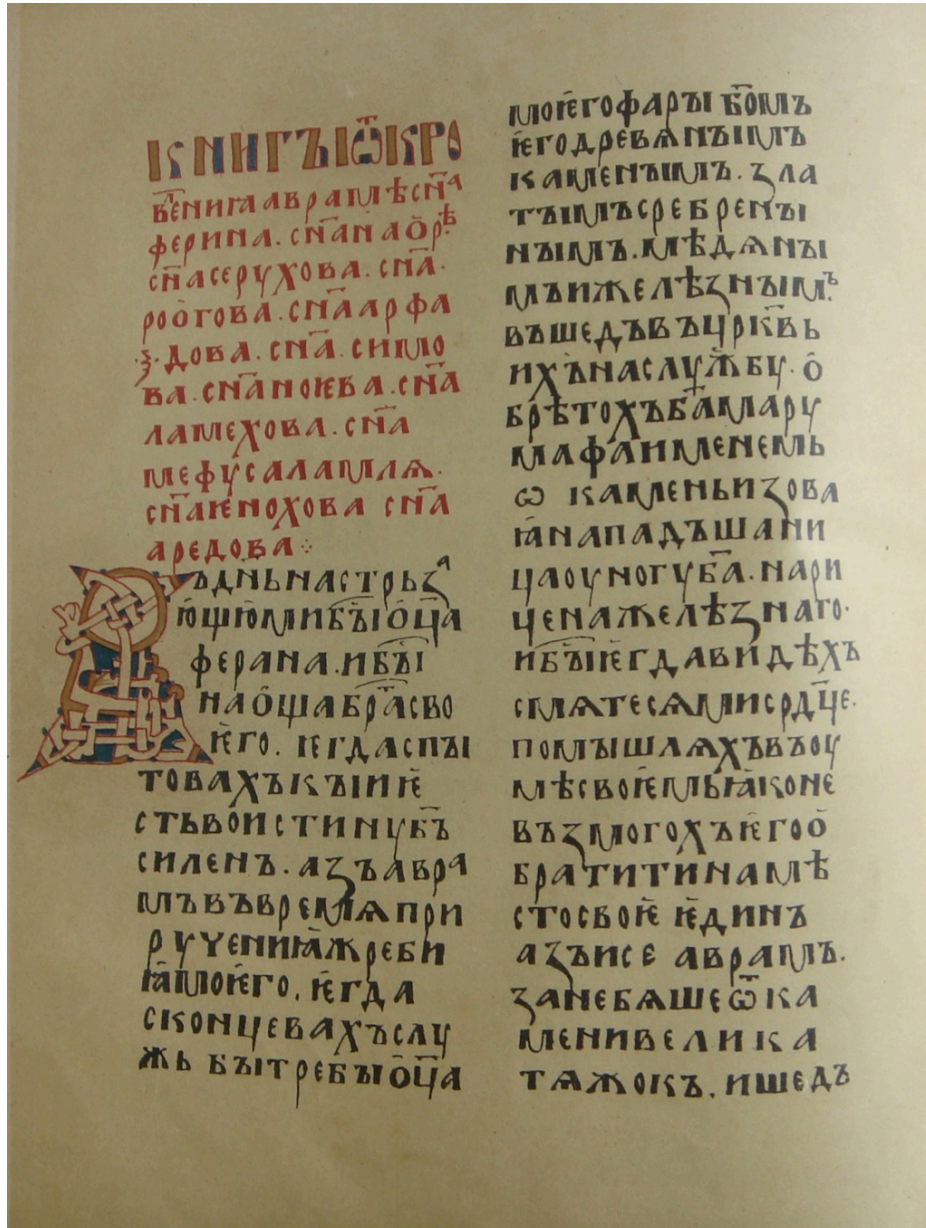 КНИГЪІѾКРО
ВЕ҃НИꙖАВРАМѢСН҃А
ФЕРИНА. СН҃АНАѺРѢ.
СН҃АСЕРУХОВА. СН҃А.
РОѺГОВА. СН҃ААРФА
·Ѯ·ДОВА. СН҃А. СИМО
ВА. СН҃АНОѤВА. СН҃А
ЛАМЕХОВА. СН҃А
МЕФУСАЛАМЛѦ.
СН҃АѤНОХОВА СН҃А
АРЕДОВА ⁘
ВЪДН҃ЬНАСТРЬЗА
ЮЩЮМИБЪ҃ІѺЦ҃А
ФЕРАНА. ИБЪ҃І
НАѺЩАБРА҃СВО
ѤГО. ѤГДАСПЪІ
ТОВАХЪКЪІИѤ
СТЬВОИСТИНУБ҃Ъ
СИЛЕНЪ. АЗЪАВРА
МЪВЪВРЕМѦПРИ
РУЧЕНИꙖЖРЕБИ
ꙖМОѤГО. ѤГДА
СКОНЦЕВАХЪСЛУ
ЖЬБЪІТРЕБЪІѺЦ҃А
МОѤГОФАРЪІ Б҃ОМЪ
ѤГОДРЕВѦНЪІМЪ
КАМЕНЪІМЪ. ЗЛА
ТЪІМЪСРЕБРЕНЪІ
НЪІМЪ. МѢДѦНЪІ
МЪИЖЕЛѢЗНЪІМЪ.
ВЪШЕДЪВЪЦРК҃ВЬ
ИХЪНАСЛУЖБУ. Ѻ
БРѢТОХЪБ҃АМАРУ
МАФАИМЕНЕМЬ
Ѡ КАМЕНЬИЗОВА
ꙖНАПАДЪШАНИ
ЦАОУНОГУБ҃А. НАРИ
ЦЕНАЖЕЛѢЗНАГО.
ИБЪ҃ІѤГДАВИДѢХЪ
СМѦТЕСѦМИСРДЦ҃Е.
ПОМЪІШЛѦХЪВЪОУ
МѢСВОѤМЬꙖКОНЕ
ВЪЗМОГОХЪѤГОѺ
БРАТИТИНАМѢ
СТОСВОѤ ѤДИНЪ
АЗЪИСЕ АВРАМЪ.
ЗАНЕБѦШЕѾКА
МЕНИВЕЛИКА
ТѦЖОКЪ. ИШЕДЪ